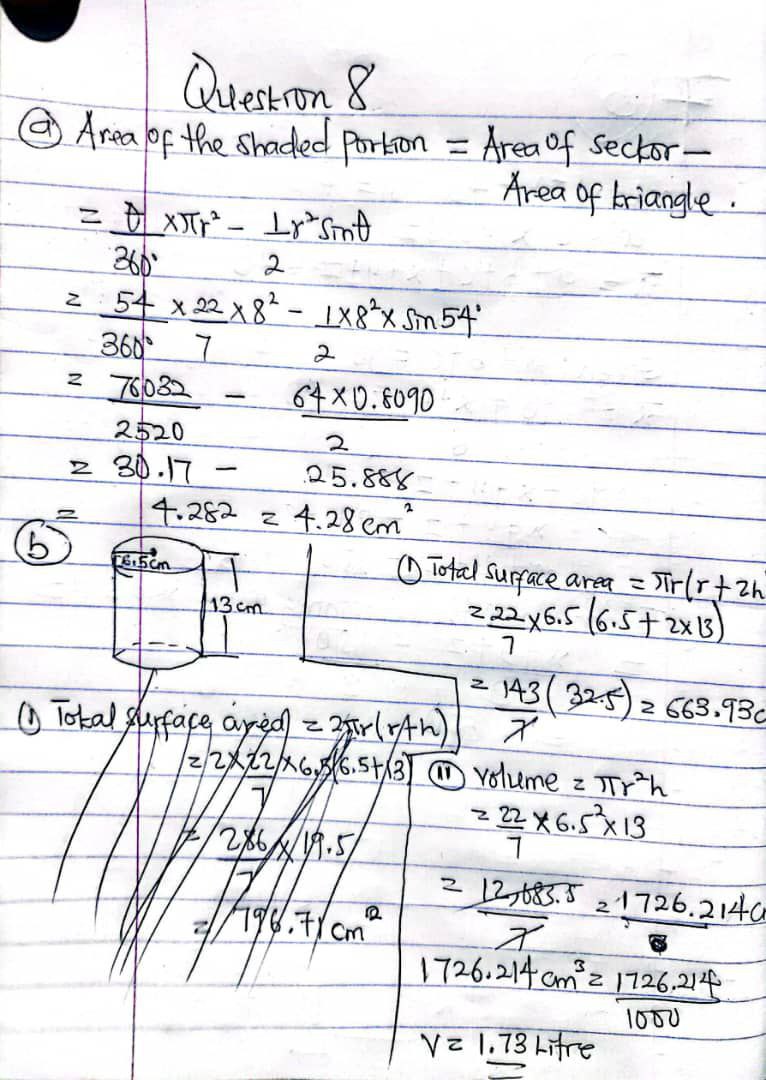 Question 8
(a) Area of the shaded portion = Area of sector –
Area of triangle.
= θ/360° × πr² – 1/2 r² sinθ
= 54/360° × 22/7 × 8² – 1/2 × 8² × sin 54°
= 76032/2520 – 64 × 0.8090/2
= 30.17 – 25.888
= 4.282 = 4.28 cm²
(b)
6.5cm
13 cm
(i) Total surface area = 2πr(r+h)
= 2 × 22/7 × 6.5(6.5+13)
= 286/7 × 19.5
= 796.71 cm²
(i) Total surface area = πr(r+2h
= 22/7 × 6.5 (6.5 + 2×13)
= 143/7 (32.5) = 663.93c
(ii) volume = πr²h
= 22/7 × 6.5² × 13
= 12,083.5/7 = 1726.214c
1726.214 cm³ = 1726.214/1000
V = 1.73 Litre